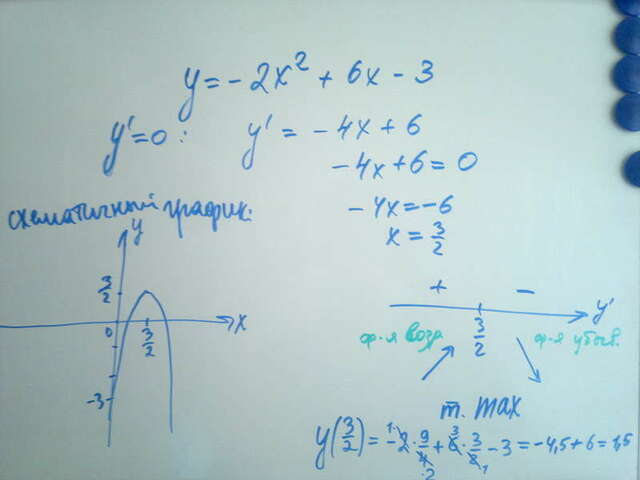 y = - 2x² + 6x - 3
y' = 0 : y' = - 4x + 6
- 4x + 6 = 0
- 4x = - 6
x = 3/2
схематичный график:
y
3/2
0
3/2
x
-3
+ -
3/2
y'
ф-я возр
ф-я убыв.
т. max
y(3/2) = -2 · 9/4 + 6 · 3/2 - 3 = -4,5 + 6 = 1,5